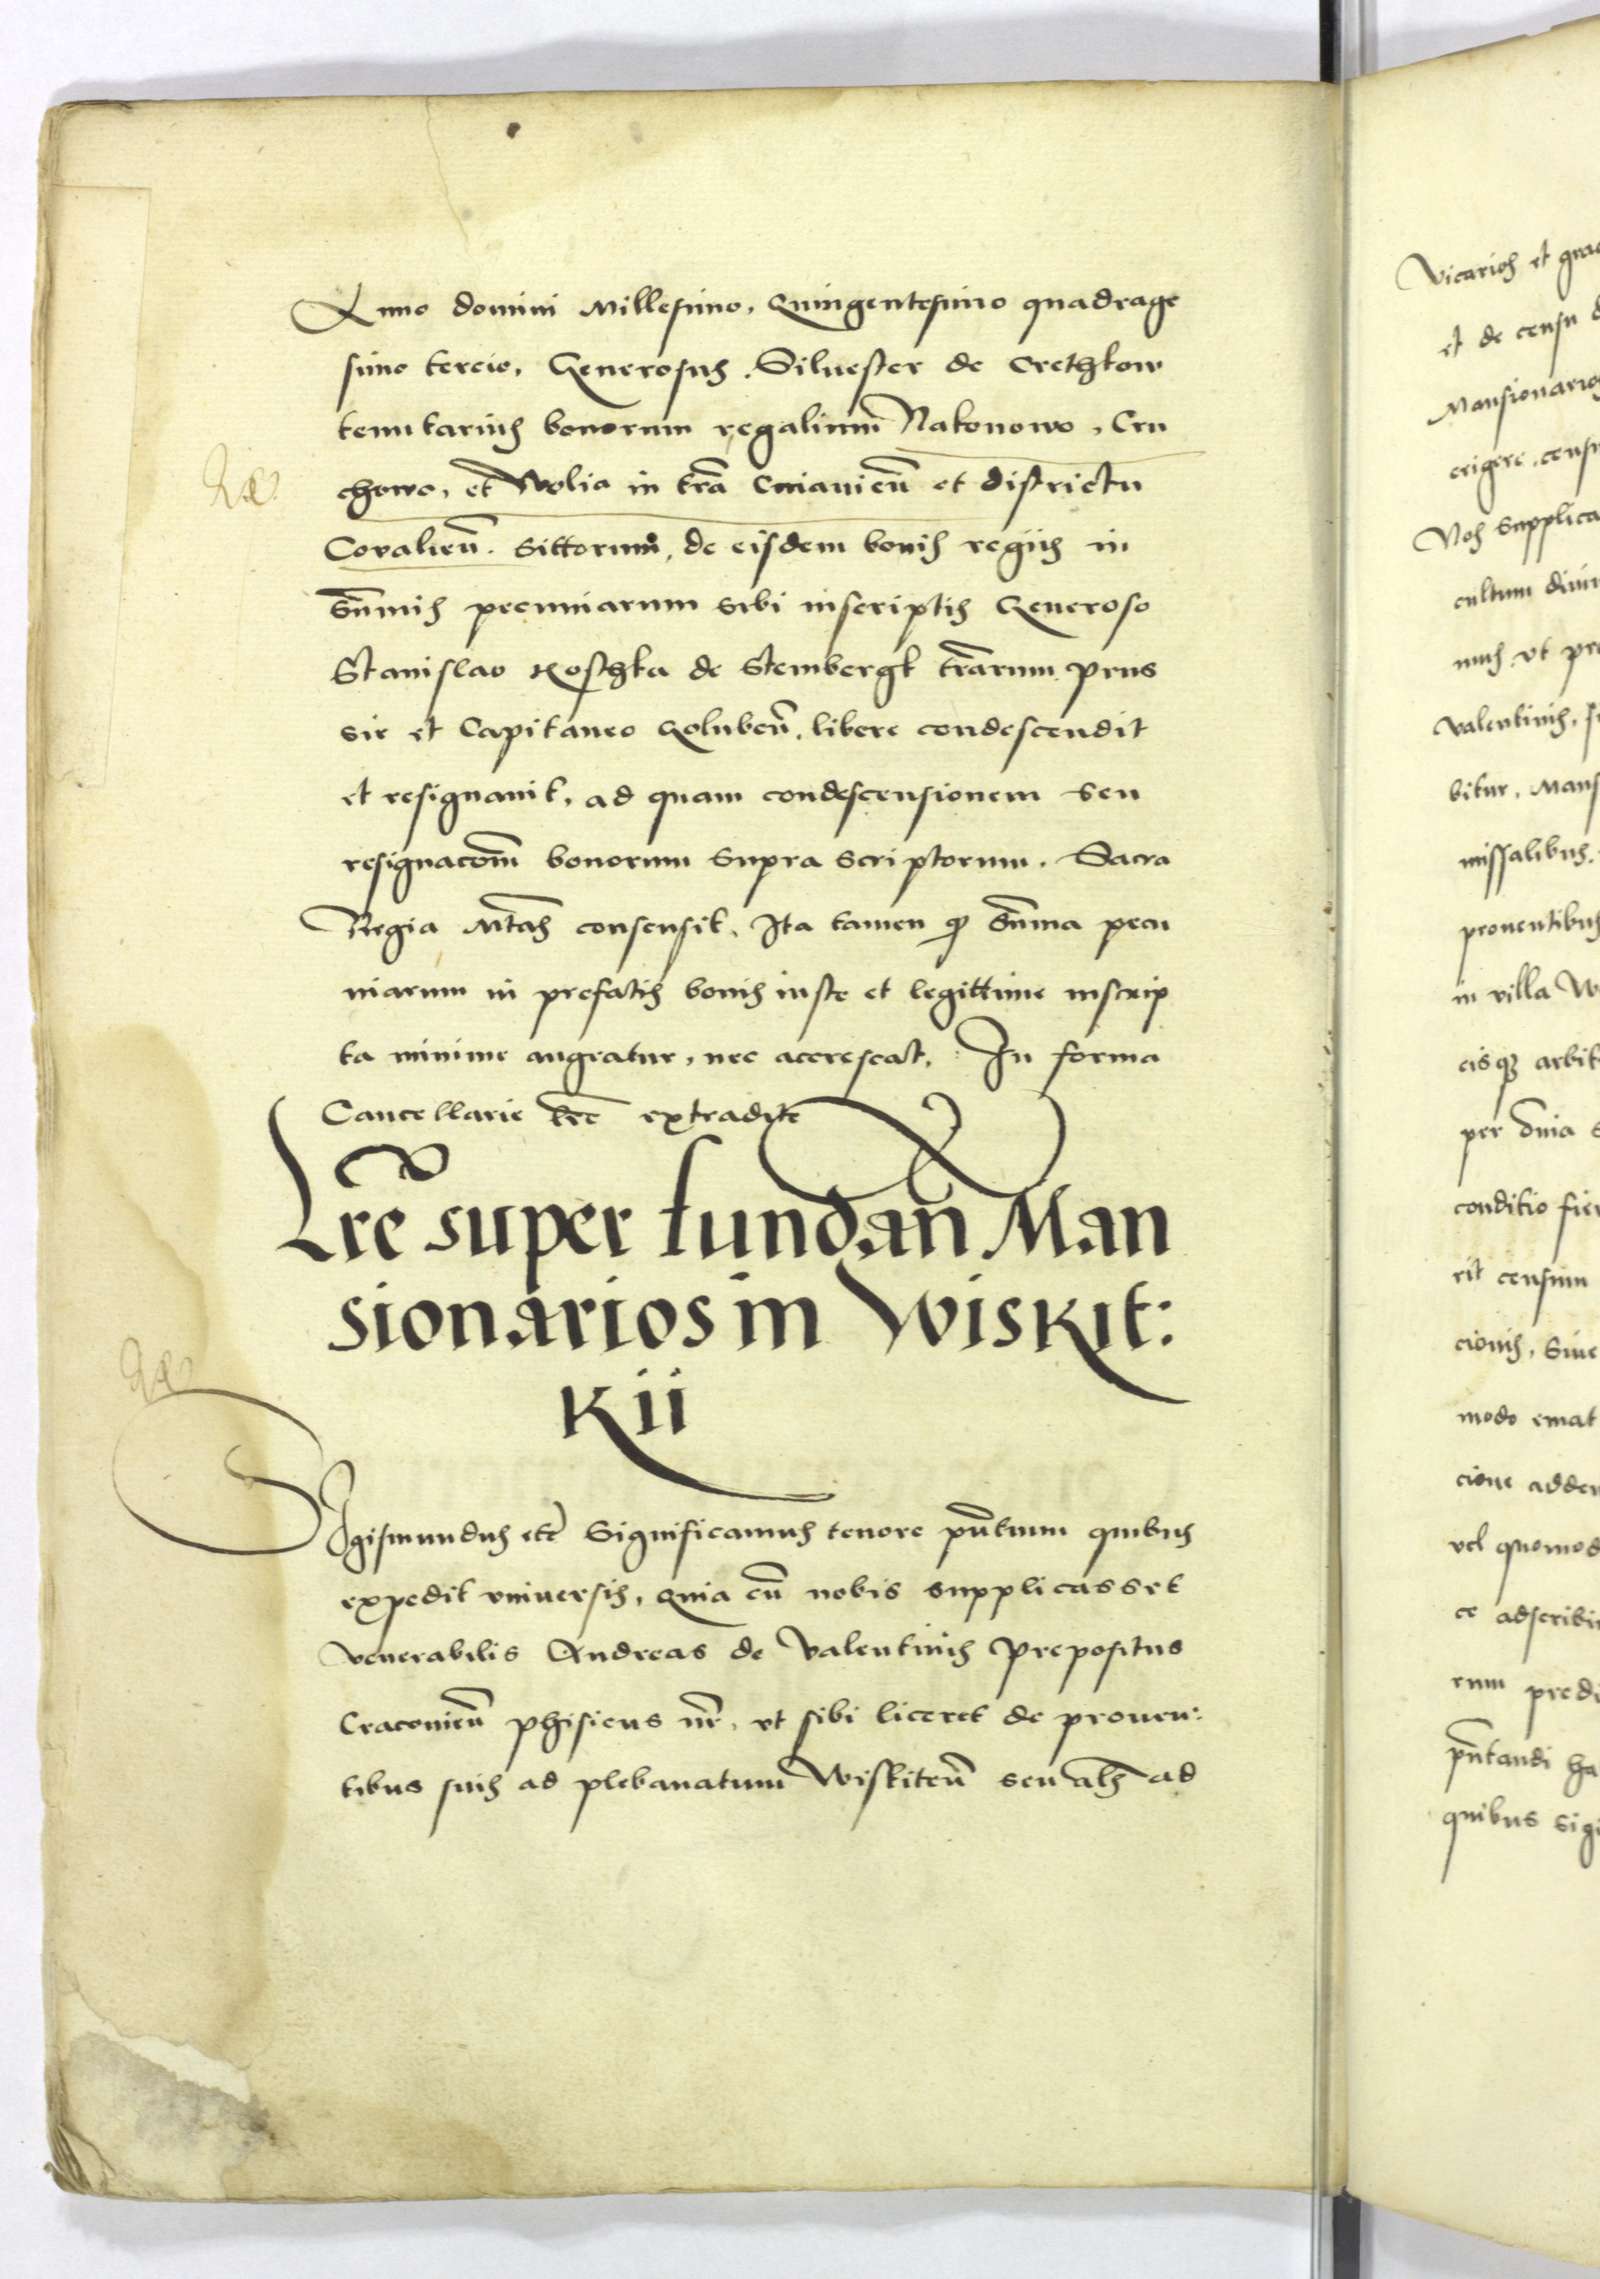 Anno domini Millesimo, Quingentesimo quadrage
simo tercio, Generosus Siluester de Crethkow
tenutarius bonorum regalium Nakonowo, Cru
chowo, et Wolia in tr̃a Cuiauien̄ et districtu
Covalien̄. Sittorum, de eisdem bonis regiis in
Sum̃is pecuniarum sibi inscriptis Generoso
Stanislao Koschka de Stembergk tr̃arum Prus
sie et Capitaneo Goluben̄, libere condescendit
et resignauit, ad quam condescensionem seu
resignacõm bonorum supra scriptorum, Sacra
Regia Mtãs consensit, Ita tamen qꝫ Sum̃a pecu
niarum in prefatis bonis iuste et legittime inscrip
ta minime augeatur, nec accrescat, In forma
Cancellarie rẽc extradite
Lrẽ super fundan̄ Man
sionarios in Wiskit:
kii
Sigismundus etc̃ Significamus tenore pñtium quibus
expedit vniuersis, Quia cũ nobis supplicasset
venerabilis Andreas de Valentinis Prepositus
Cracouien̄ phisicus nr̃, vt sibi liceret de prouen:
tibus suis ad plebanatum Wiskiten̄ seu al̃s ad
Vicarios et
et de censu
Mansionarios
erigere, cens
Nos supplica
cultum diui
mus vt pre
Valentinis,
bitur, Mans
missalibus,
prouentibus
in villa W
cisqꝫ arbit
per om̃ia
conditio fier
rit censum
cionis, siue
modo emat
cione adden
vel quomod
ce adscribi
rum predi
pñtandi ha
quibus sigi